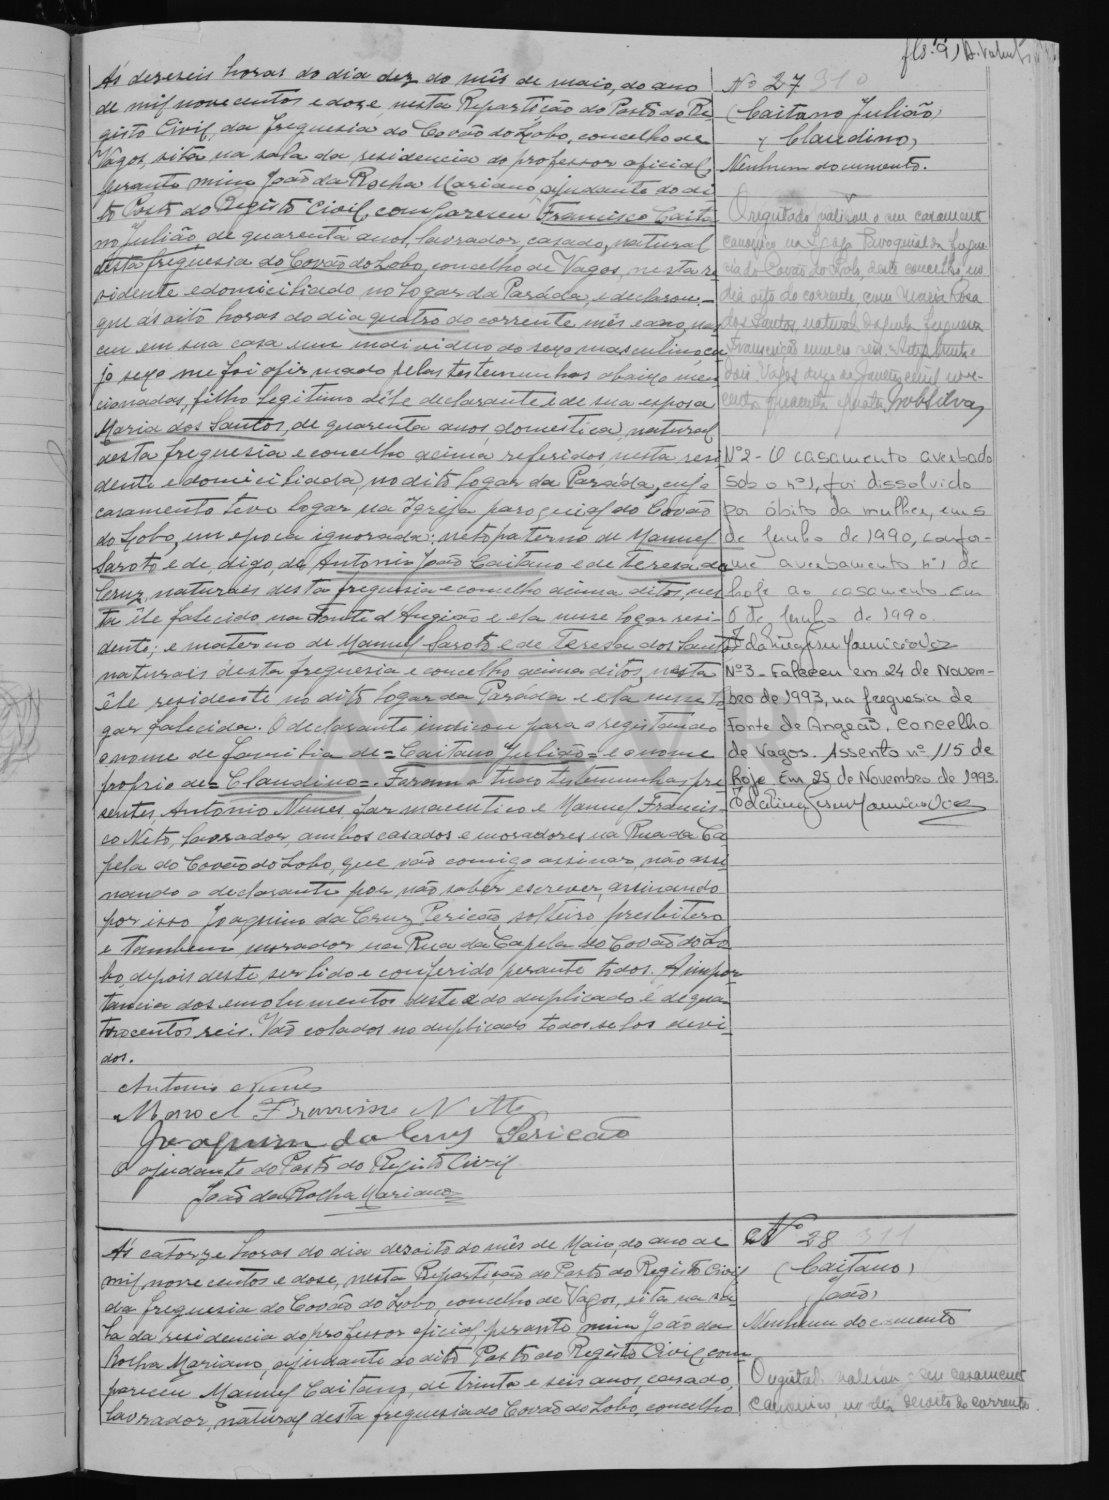 Ás deseseis horas do dia dez do mês de maio, do ano
de mil nove centos e doze, nesta Repartição do Posto do Re-
gisto Civil, da freguesia do Covão do Lobo, concelho de
Vagos, sita na sala da residencia do professor oficial,
perante mim João da Rocha Mariano, ajudante do di-
to Posto do Registo Civil, compareceu Francisco Caita-
no Julião, de quarenta anos, lavrador, casado, natural
desta freguesia do Covão do Lobo, concelho de Vagos, nesta re-
sidente e domiciliado no logar da Paráda, e declarou-
que ás oito horas do dia quatro do corrente mês e ano, nas-
ceu em sua casa um individuo do sexo masculino, cu-
jo sexo me foi afirmado pelas testemunhas abaixo men-
cionadas, filho legitimo dêle declarante e de sua esposa
Maria dos Santos, de quarenta anos, domestica, natural
desta freguesia e concelho acima referidos, nesta resi-
dente e domiciliada, no dito logar da Paráda, cujo
casamento teve logar na Igreja paroquial do Covão
do Lobo, em epoca ignorada; neto paterno de Manuel
Saroto e de, digo, de Antonio João Caitano e de Teresa da
Cruz, naturais desta freguesia e concelho acima ditos, nes-
ta êle falecido, na Fonte d'Angião e ela nesse logar resi-
dente; e materno de Manuel Saroto e de Teresa dos Santos
naturais desta freguesia e concelho acima ditos, nesta
êle residente no dito logar da Paráda e ela nesse lo-
gar falecida. O declarante indicou para o registando
o nome de familia de = Caitano Julião = e o nome
proprio de = Claudino =. Foram a tudo testemunhas pre-
sentes, Antonio Nunes, farmaceutico e Manuel Francis-
co Neto, lavrador, ambos casados e moradores na Rua da Ca-
pela do Covão do Lobo, que vão comigo assinar, não assi-
nando o declarante por não saber escrever, assinando
por isso Joaquim da Cruz Pericão, solteiro, presbitero
e tambem morador na Rua da Capela do Covão do Lo-
bo, depois deste ser lido e conferido perante todos. A impor-
tancia dos emolumentos deste e do duplicado é de qua-
trocentos reis. Vão colados no duplicado todos selos devi-
dos.
Antonio Nunes
Manoel Francisco Netto
Joaquim da Cruz Pericão
O ajudante do Posto do Registo Civil
João da Rocha Mariano
Nº 27 310
(Caitano Julião)
Claudino,
Nenhum documento.
O registado realisou o seu casamento
canonico na Igreja Paroquial da fregue-
sia do Covão do Lobo, deste concelho, no
dia oito do corrente, com Maria Rosa
dos Santos, natural daquela freguesia
Nº 2 - O casamento averbado
sob o nº 1, foi dissolvido
por óbito da mulher, em 5
de Junho de 1990, confor-
me averbamento nº 1 de
hoje ao casamento. Em
de Junho de 1990.
Nº 3 - Faleceu em 24 de Novem-
bro de 1993, na freguesia de
Fonte de Angeão, concelho
de Vagos. Assento nº 115 de
hoje. Em 25 de Novembro de 1993.
Ás catorze horas do dia desoito do mês de Maio, do ano de
mil nove centos e dose, nesta Repartição do Posto do Registo Civil
da freguesia do Covão do Lobo, concelho de Vagos, sita na sa-
la da residencia do professor oficial, perante mim João da
Rocha Mariano, ajudante do dito Posto do Registo Civil, com-
pareceu Manuel Caitano, de trinta e seis anos, casado,
lavrador, natural desta freguesia do Covão do Lobo, concelho
Nº 28 311
(Caitano)
João,
Nenhum documento
O registado realisou o seu casamento
canonico, no dia desoito do corrente